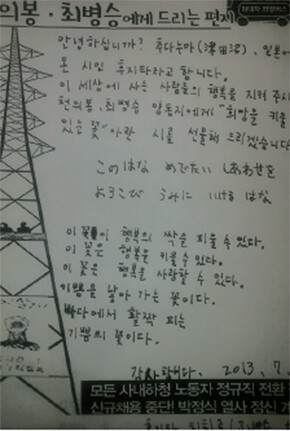 의봉·최병승에게 드리는 편지
안녕하십니까? 후다누마 (津田沼), 일본어
본 시인 후지따라고 합니다.
이 세상에 사는 사람들의 행복을 지켜 주시
천의봉·최병승 양동지에게 "희망을 키울
있는 꽃"아란 시를 선물해 드리겠습니다
このはな めでたい しあわせを
よろこび うみに いける はな
이 꽃이 행복의 싹을 피울 수 있다.
이 꽃은 행복을 키울 수 있다.
이 꽃은 행복을 사랑할 수 있다.
기쁨을 낳아 가는 꽃이다.
바다에서 활짝 피는
기쁨의 꽃이다.
감사합니다. 2013. 7.
모든 사내하청 노동자 정규직 전환
신규채용 중단! 박정식 열사 정신 계